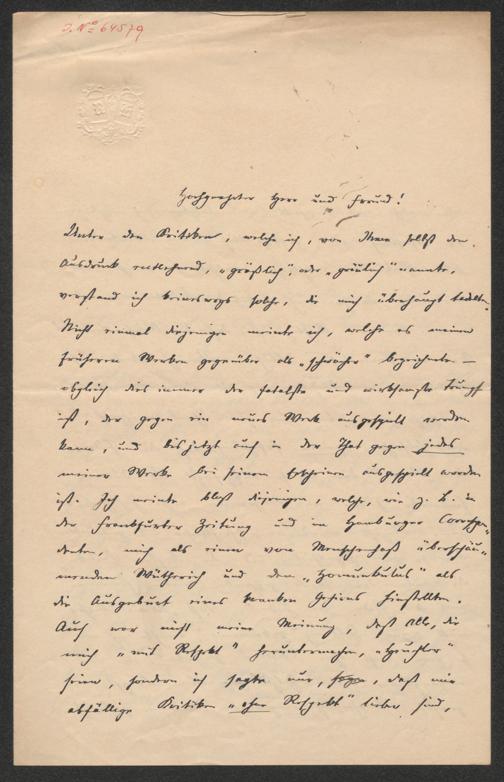 J. No 64579
Hochgeehrter Herr und Freund!
Unter den Kritiken, welche ich, von Ihnen selbst den
Ausdruck entlehnend, „gräßlich“, oder „greulich“ nannte,
verstand ich keineswegs solche, die mich überhaupt tadelten.
Nicht einmal diejenigen meinte ich, welche es meinen
früheren Werken gegenüber als „schwächer“ bezeichneten —
obgleich dies immer der fatalste und wirksamste Trumpf
ist, der gegen ein neues Werk ausgespielt werden
kann, und bis jetzt auch in der That gegen jedes
meiner Werke bei seinem Erscheinen ausgespielt worden
ist. Ich meinte bloß diejenigen, welche, wie z. B. in
der Frankfurter Zeitung und im Hamburger Correspon-
denten, mich als einen von Menschenhaß überschäu-
menden Wütherich und den „Homunkulus“ als
die Ausgeburt eines kranken Gehirns hinstellten.
Auch war nicht meine Meinung, daß Alle, die
mich „mit Respekt“ heruntermachen, „Heuchler“
seien, sondern ich sagte nur, daß mir
abfällige Kritiken „ohne Respekt“ lieber sind,